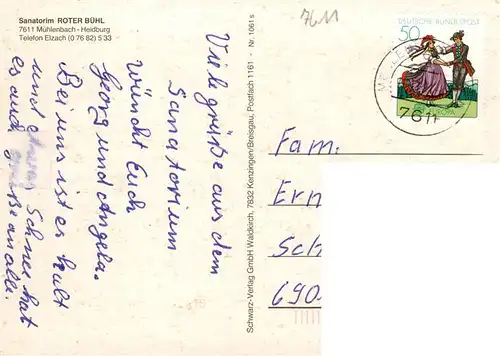 Sanatorim ROTER BÜHL
7611 Mühlenbach - Heidburg
Telefon Elzach (0 76 82) 5 33
7611
DEUTSCHE BUNDESPOST
50
7611
Viele grüße aus dem
Sanatorium
wüncht Euch
Georg und Angela.
Bei uns ist es kalt
und Schnee hat
es auch grüße an alle.
Schwarz-Verlag GmbH Waldkirch, 7832 Kenzingen/Breisgau, Postfach 1161 - Nr. 1061s
Fam.
Ern
Sch
690